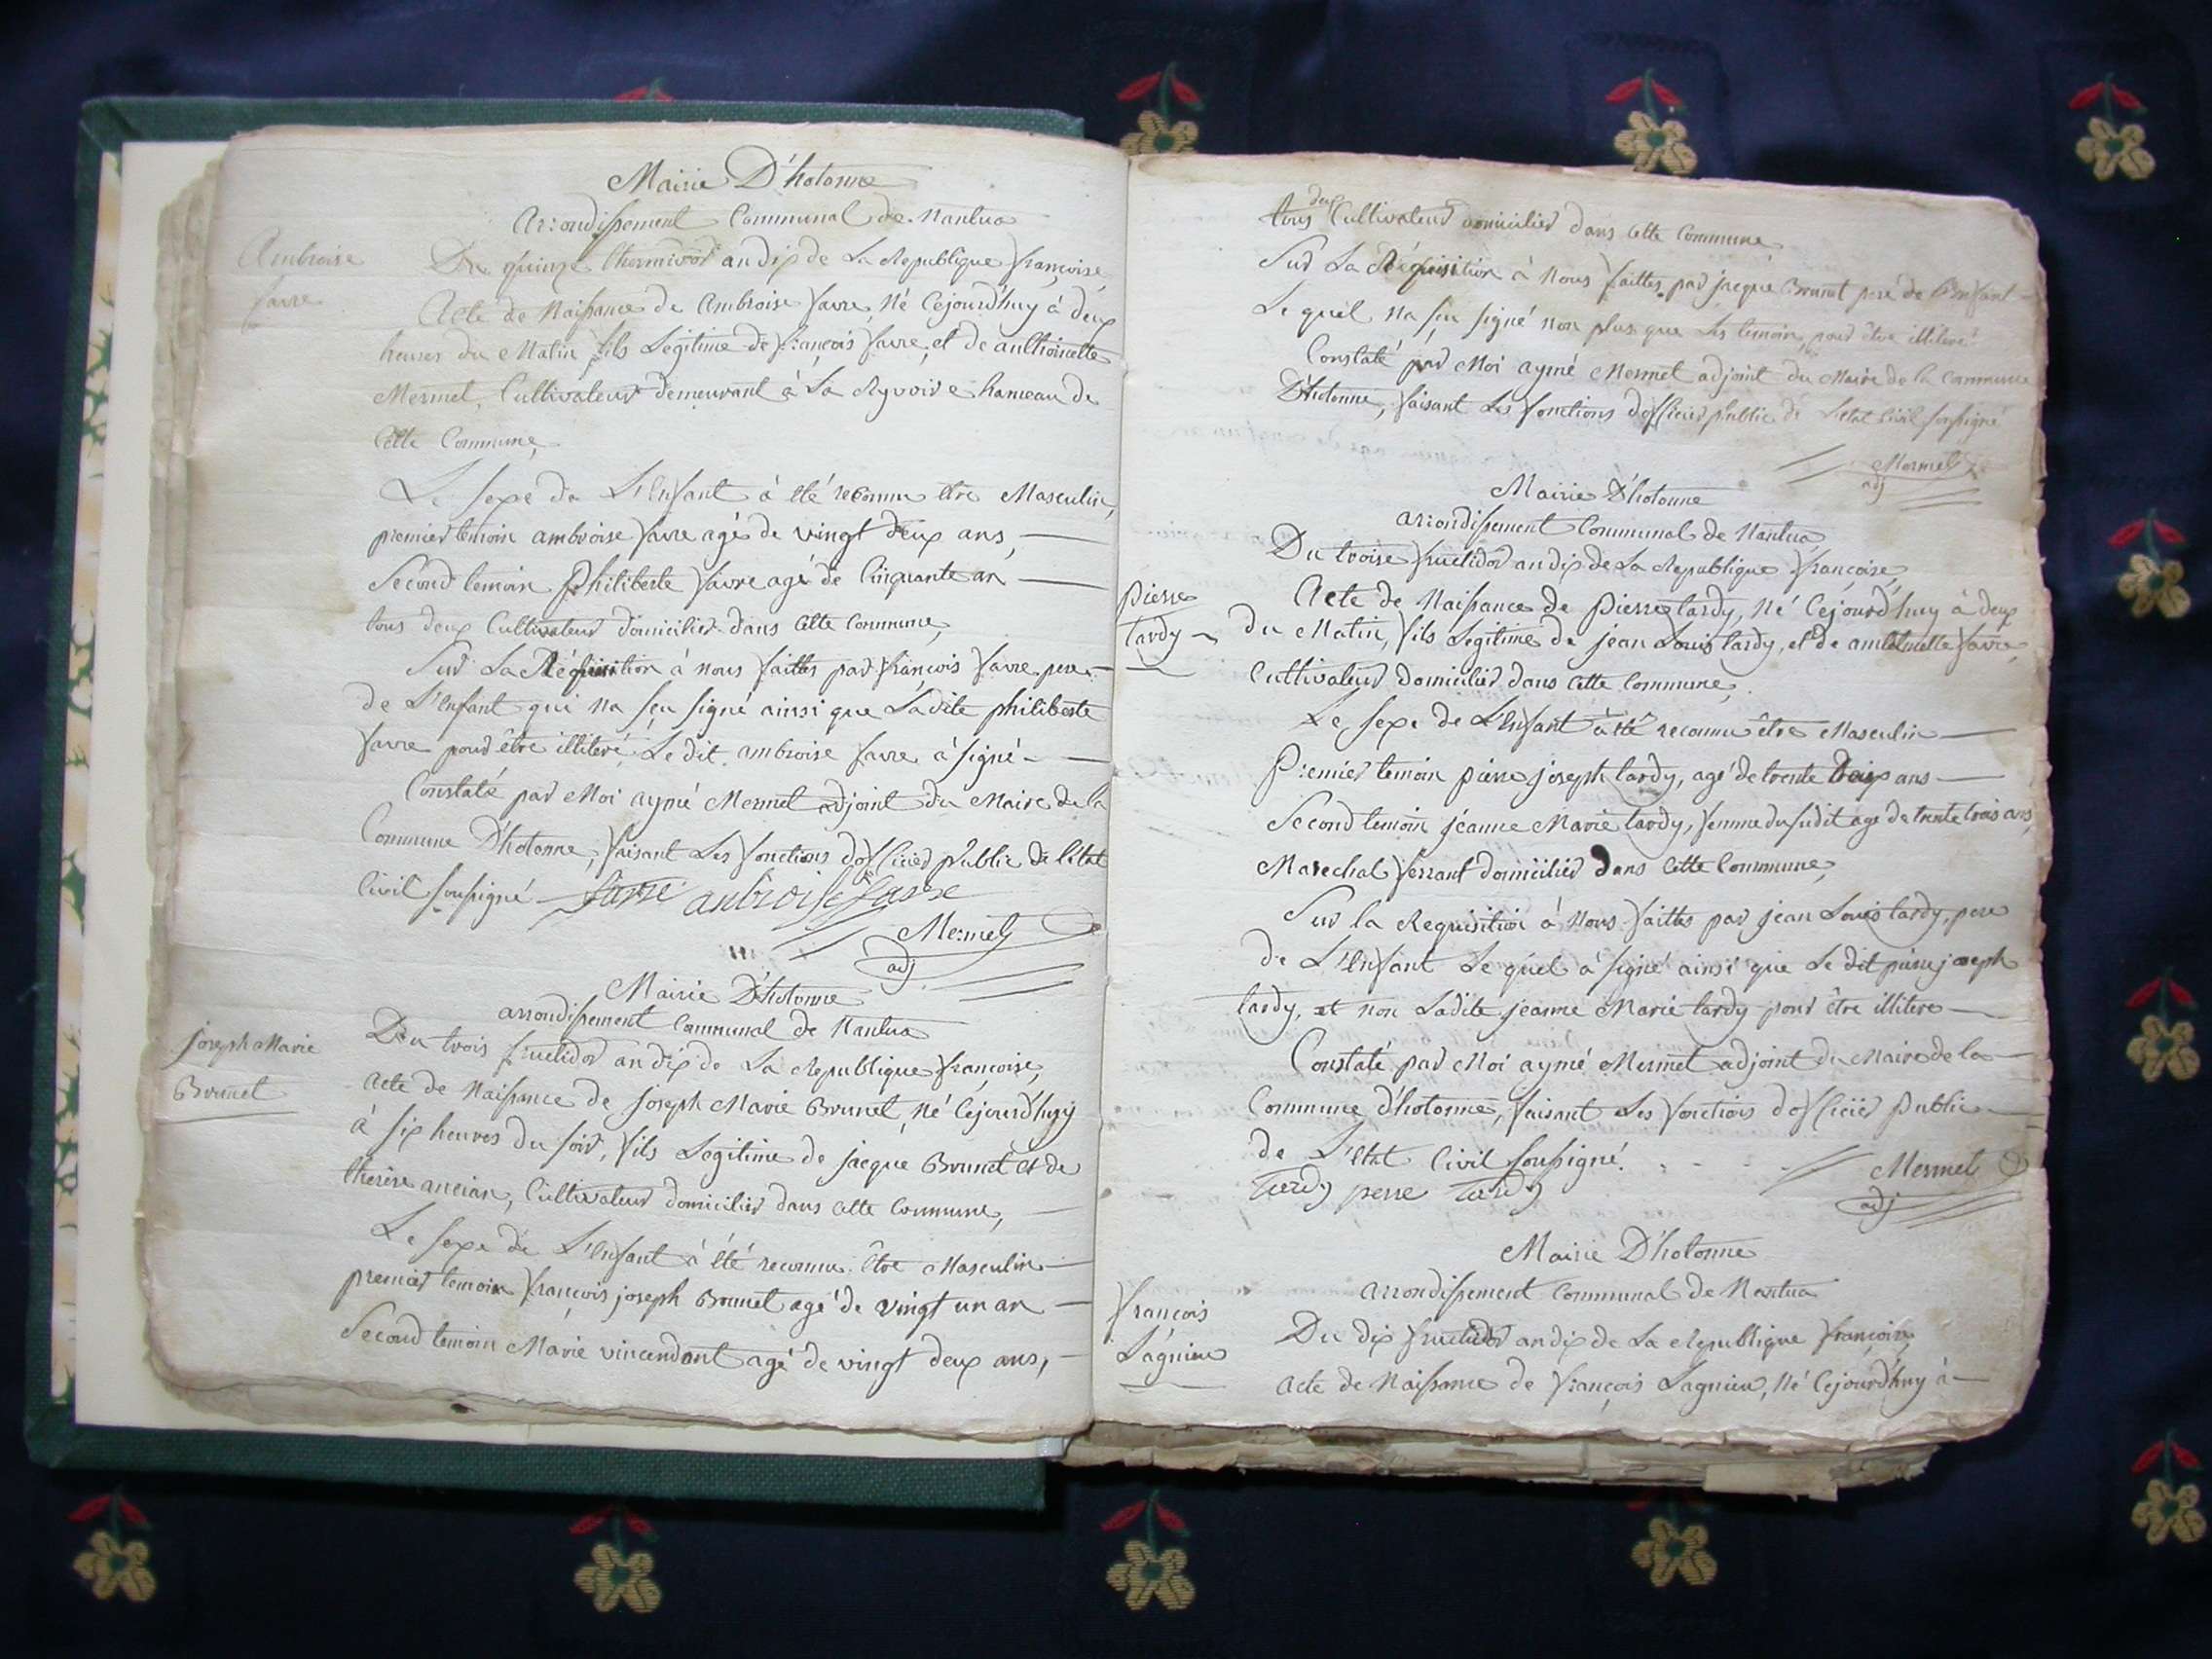 Mairie D'hotonne
Arrondissement Communal de Nantua
Ambroise
favre
Du quinze thermidor an dix de La Republique françoise,
Acte de Naissance de Ambroise favre, Né Cejourd'huy à deux
heures du Matin fils Légitime de françois favre, et de anthoinette
Mermet, Cultivateur demeurant à La Ryvoire hameau de
Cette Commune,
Le sexe de L'enfant à été reconnu être Masculin,
premier temoin ambroise favre agé de vingt deux ans,
Second temoin Philiberte favre agé de Cinquante an
tous deux Cultivateur domicilier dans Cette Commune,
Sur La Réquisition à nous faittes par françois favre pere
de L'enfant qui na sçu signé ainsi que Ladite philiberte
favre pour être illiteré. Le dit ambroise favre à signé
Constaté par Moi aymé Mermet adjoint du Maire de la
Commune D'hotonne, faisant Les fonctions d'officier public de l'état
Civil soussigné favre anbroise favre
Mermet
adj
Mairie D'hotonne
arrondissement Communal de Nantua
joseph Marie
Brunet
Du trois fructidor an dix de La Republique françoise,
Acte de Naissance de joseph Marie Brunet, Né Cejourd'huy
à six heures du soir, fils Legitime de jacque Brunet et de
therèse ancian, Cultivateur domicilier dans Cette Commune,
Le sexe de L'enfant à été reconnu être Masculin
premier temoin françois joseph Brunet agé de vingt un an
Second temoin Marie vincendant agé de vingt deux ans,
tous deux Cultivateur domicilier dans Cette Commune
Sur La Réquisition à Nous faittes par jacque Brunet peré de L'enfant
Le quel na sçu signé non plus que Les temoin, pour être illiteré
Constaté par Moi aymé Mermet adjoint du Maire de la Commune
D'hotonne, faisant Les fonctions d'officier public de L'état Civil soussigné
Mermet
adj
Mairie D'hotonne
arrondissement Communal de Nantua
Du troise fructidor an dix de La Republique françoise,
pierre
tardy
Acte de Naissance de Pierre tardy, Né Cejourd'huy à deux
du Matin, fils Legitime de jean Louis tardy, et de anthelmette favre,
Cultivateur domicilier dans Cette Commune,
Le sexe de L'enfant à été reconnu être Masculin
Premier temoin pierre joseph tardy, agé de trente trois ans
Second temoin jeanne Marie tardy, femme du sudit age de trente trois ans,
Marechal ferrant domicilier dans Cette Commune,
Sur la Requisition à Nous faittes par jean Louis tardy, pere
de L'enfant Le quel à signé ainsi que Le dit pierre joseph
tardy, et non Ladite jeanne Marie tardy pour être illitere
Constaté par Moi aymé Mermet adjoint du Maire de la
Commune d'hotonne, faisant Les fonctions d'officier public
de L'état Civil soussigné.
Mermet
adj
Tardy perre Tardy
Mairie D'hotonne
arrondissement Communal de Nantua
françois
Lagnieu
Du dix fructidor an dix de La Republique françoise,
acte de Naissance de françois Lagnieu, Né Cejourd'huy à